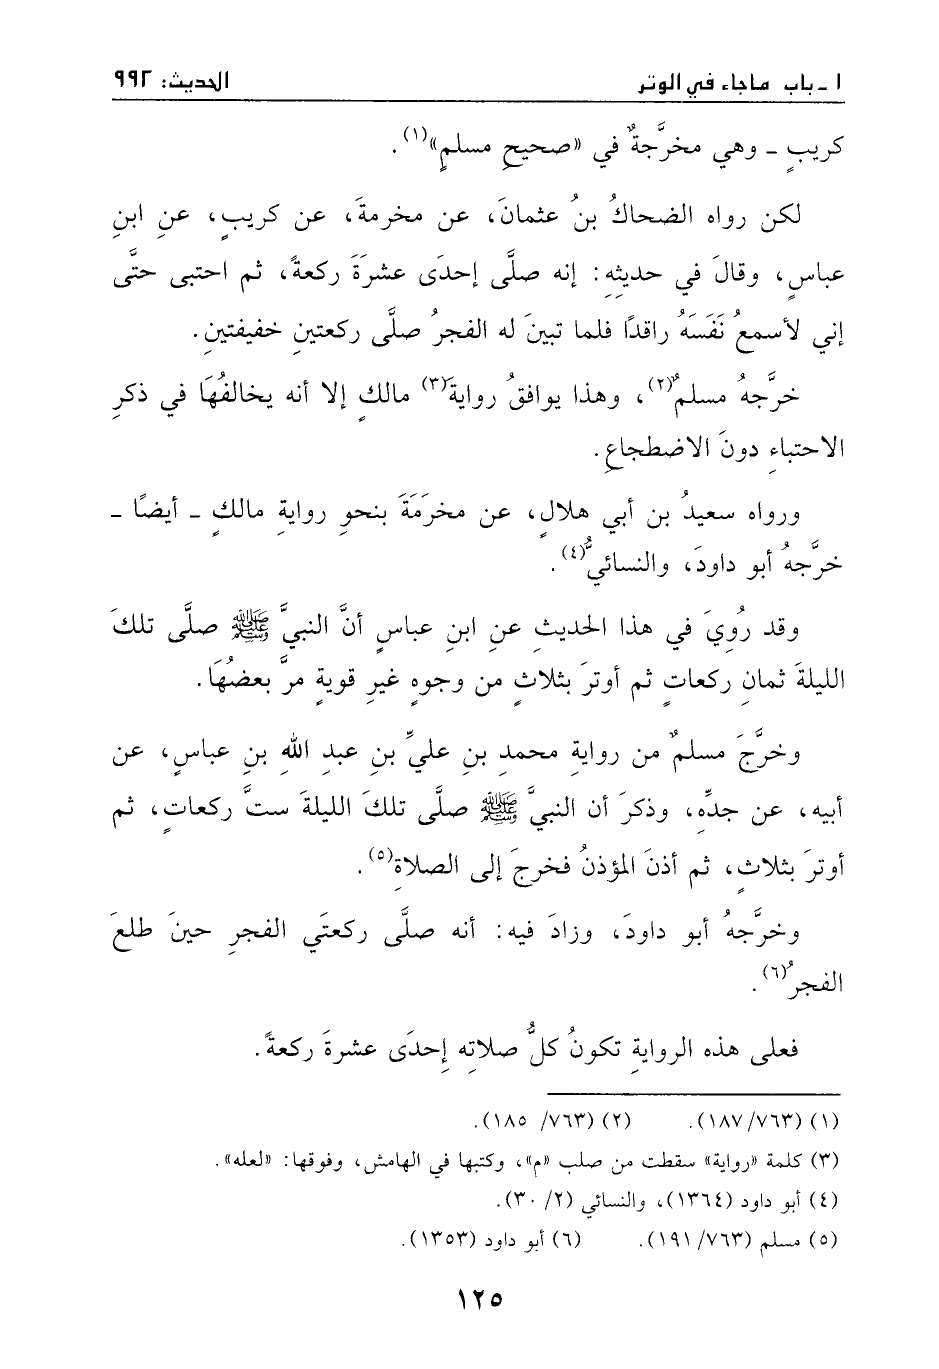 ١ - باب ماجاء في الوتر الحديث: ٩٩٢
كريبٍ - وهي مخرَّجةٌ في «صحيحِ مسلمٍ»(١).
لكن رواه الضحاكُ بنُ عثمانَ، عن مخرمةَ، عن كريبٍ، عنِ ابنِ
عباسٍ، وقالَ في حديثِهِ: إنه صلَّى إحدَى عشرَةَ ركعةً، ثم احتبى حتَّى
إني لأسمعُ نَفَسَهُ راقدًا فلما تبينَ له الفجرُ صلَّى ركعتينِ خفيفتينِ.
خرَّجهُ مسلمٌ(٢)، وهذا يوافقُ روايةَ(٣) مالكٍ إلا أنه يخالفُهَا في ذكرِ
الاحتباءِ دونَ الاضطجاعِ.
ورواه سعيدُ بن أبي هلالٍ، عن مخرَمَةَ بنحوِ روايةِ مالكٍ - أيضًا -
خرَّجهُ أبو داودَ، والنسائيُّ(٤).
وقد رُوِيَ في هذا الحديثِ عنِ ابنِ عباسٍ أنَّ النبيَّ ﷺ صلَّى تلكَ
الليلةَ ثمانِ ركعاتٍ ثم أوترَ بثلاثٍ من وجوهٍ غيرِ قويةٍ مرَّ بعضُهَا.
وخرَّجَ مسلمٌ من روايةِ محمدِ بنِ عليِّ بنِ عبدِ اللهِ بنِ عباسٍ، عن
أبيه، عن جدِّهِ، وذكرَ أن النبيَّ ﷺ صلَّى تلكَ الليلةَ ستَّ ركعاتٍ، ثم
أوترَ بثلاثٍ، ثم أذنَ المؤذنُ فخرجَ إلى الصلاةِ(٥).
وخرَّجهُ أبو داودَ، وزادَ فيه: أنه صلَّى ركعتَي الفجرِ حينَ طلعَ
الفجرُ(٦).
فعلى هذه الروايةِ تكونُ كلُّ صلاتِه إحدَى عشرةَ ركعةً.
(١) (٧٦٣/١٨٧). (٢) (٧٦٣/ ١٨٥).
(٣) كلمة «رواية» سقطت من صلب «م»، وكتبها في الهامش، وفوقها: «لعله».
(٤) أبو داود (١٣٦٤)، والنسائي (٢/ ٣٠).
(٥) مسلم (٧٦٣/ ١٩١). (٦) أبو داود (١٣٥٣).
١٢٥